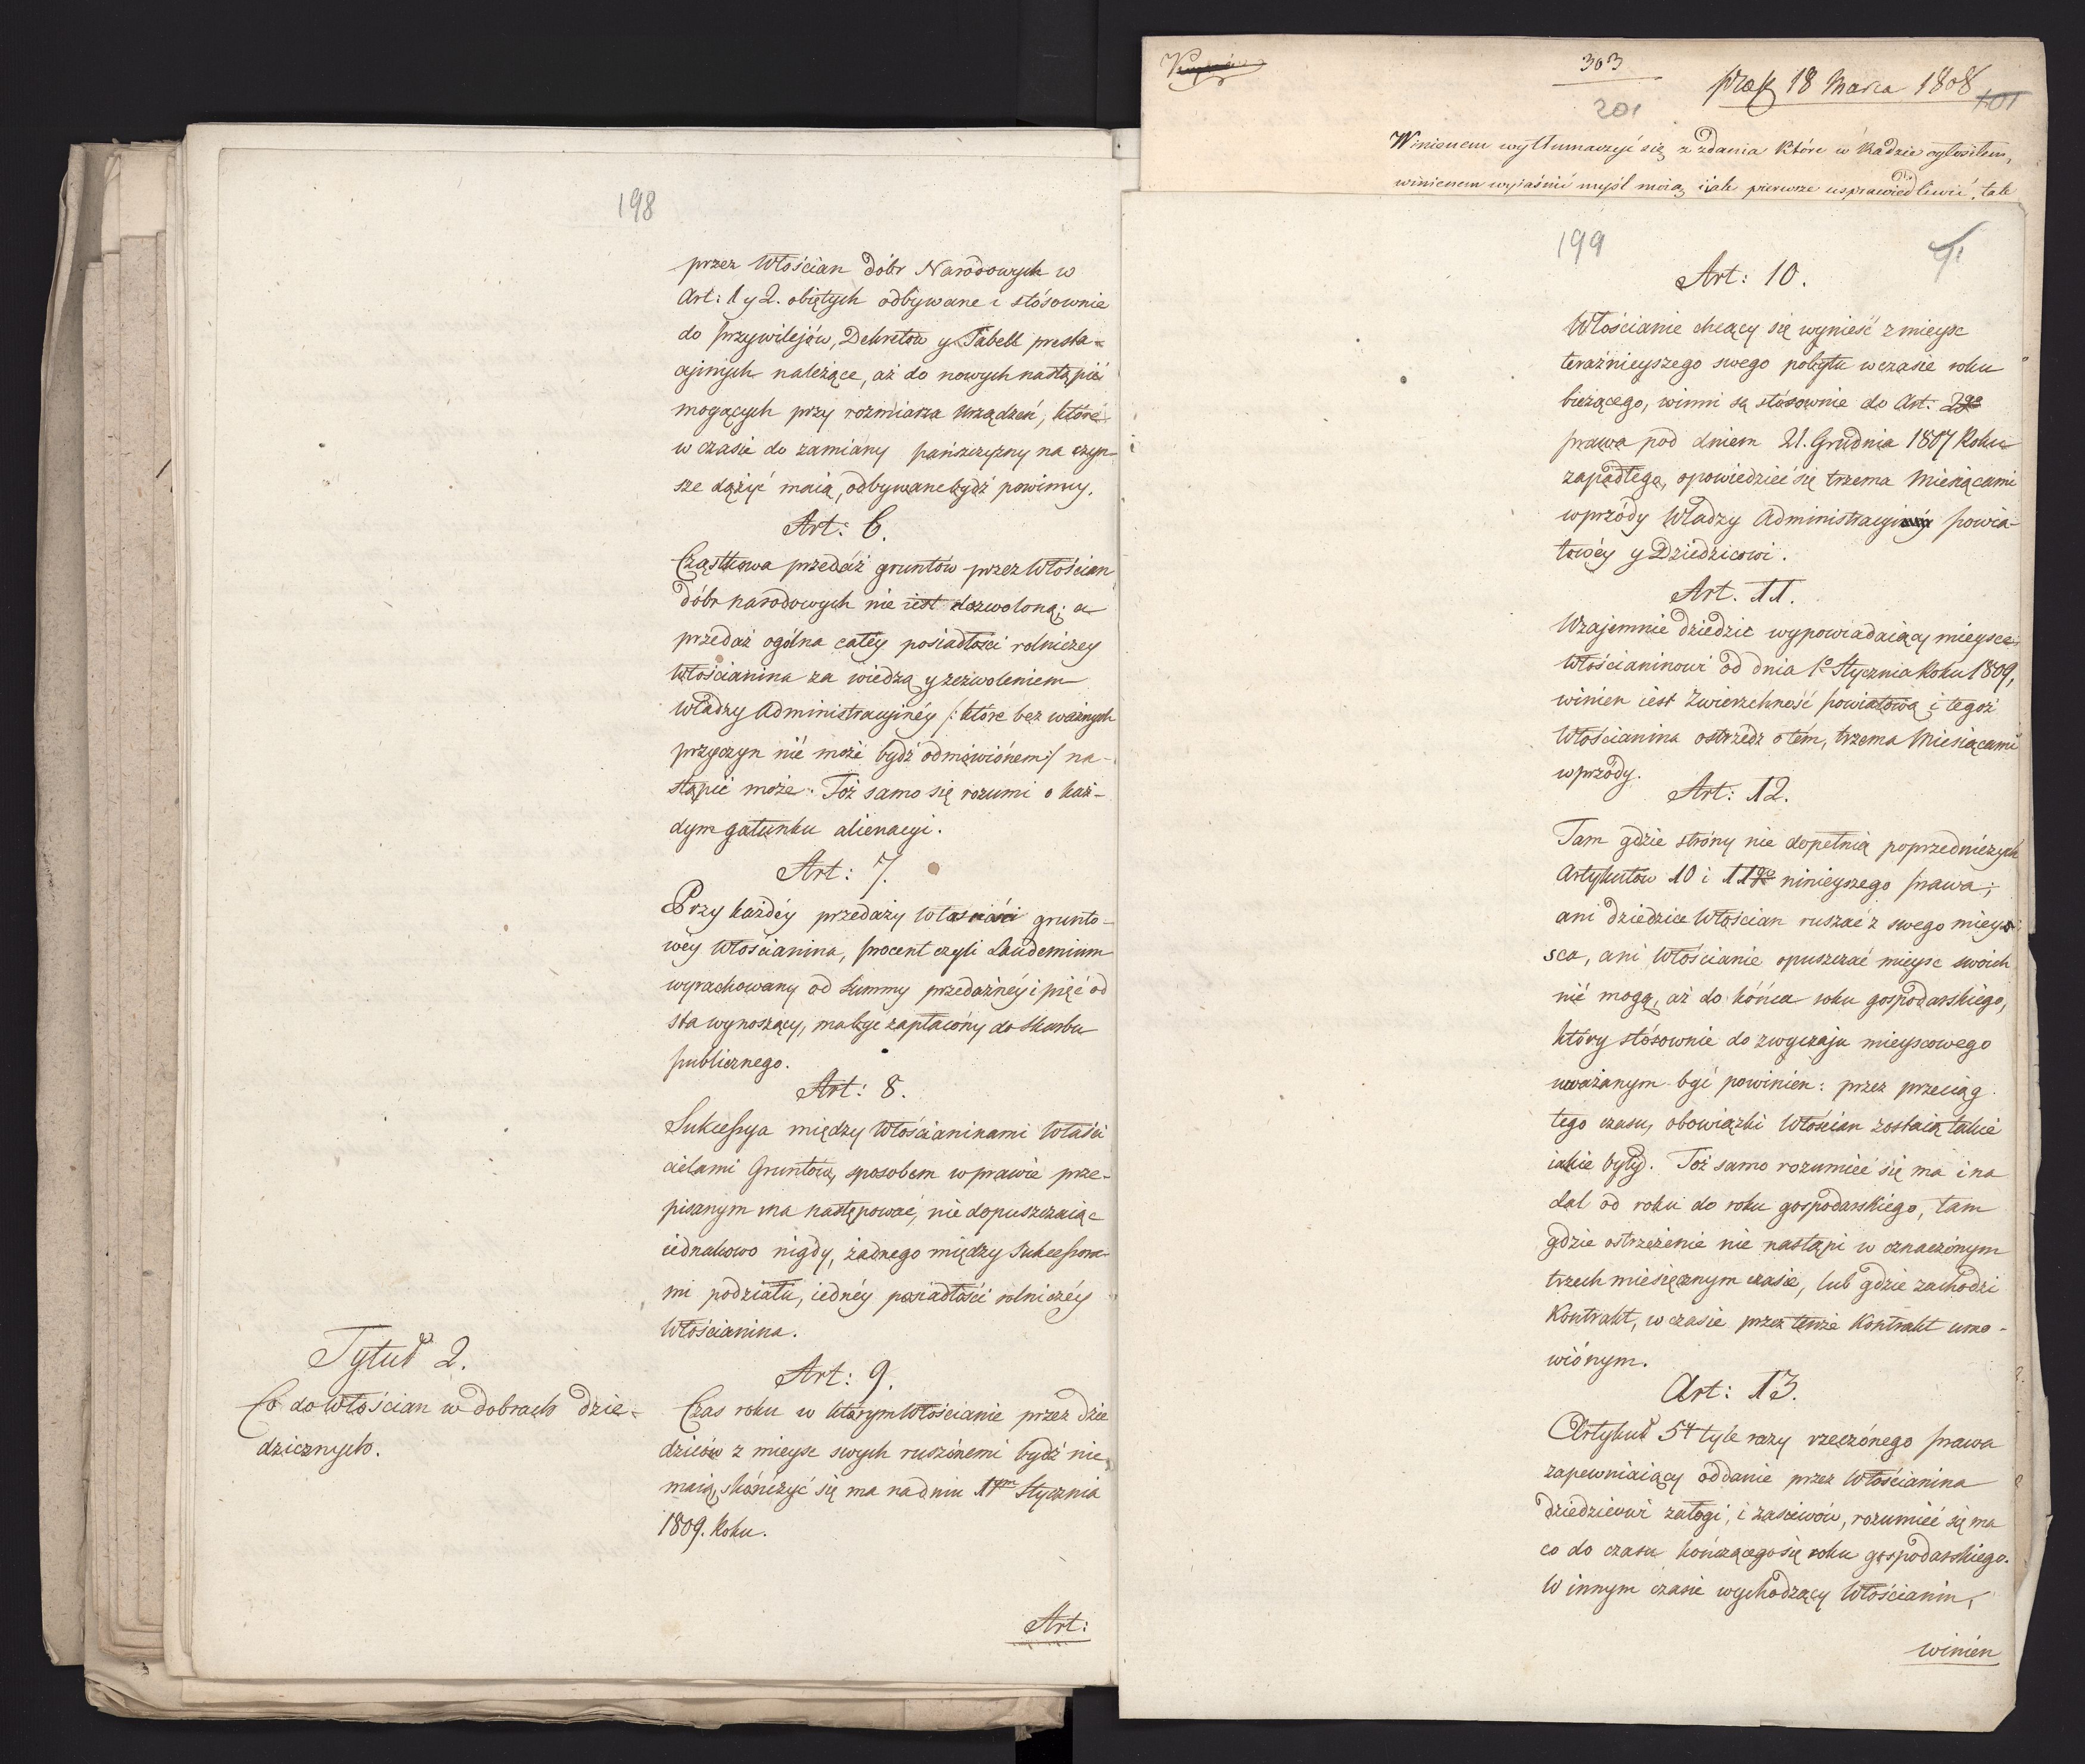 198
przez Włościan dóbr Narodowych w
Art: 1 y 2. obiętych odbywane i stósownie
do przywilejów, Dekretów y Tabell presta-
cyinych należące, aż do nowych nastąpić
mogących przy rozmiarza urządzeń, które
w czasie do zamiany pańszczyzny na czyn-
sze dążyć maią, odbywane bydź powinny.
Art: 6.
Cząstkowa przedaż gruntów przez Włościan
dóbr narodowych nie iest dozwoloną; a
przedaż ogólna całéy posiadłości rolniczey
Włościanina za wiedzą y zezwoleniem
władzy Administracyinéy /: które bez ważnych
przyczyn nié może bydź odmówiónem :/ na-
stąpić może. Toż samo się rozumi o każ-
dym gatunku alienacyi.
Art: 7.
Przy każdéy przedaży własności grunto-
wéy Włościanina, procent czyli Laudemium
wyrachowany od summy przedażnéy i pięć od
sta wynoszący, ma być zapłacóny do Skarbu
publicznego.
Art: 8.
Sukcessya między Włościaninami Właści
cielami Gruntów, sposobem w prawie prze-
pisanym ma następować, nie dopuszczaiąc
iednakowo nigdy, żadnego między Sukcessora-
mi podziału, iednéy posiadłości rolniczéy
Włościanina.
Tytuł 2.
Co do Włościan w dobrach dzie-
dzicznych.
Art: 9.
Czas roku w którym Włościanie przez dzie
dziców z mieysc swych ruszónemi bydź nie
maią, skónczyć się ma na dniu 1ym Stycznia
1809. Roku.
Art:
303
201
præs 18 Marca 1808
101
Winienem wytłumaczyć się z zdania które w Radzie ogłosiłem,
winienem wyiaśnić myśl moią, i iak pierwsze usprawiedliwić, tak
199
Art: 10.
Włościanie chcący się wynieść z mieysc
teraźnieyszego swego pobytu w czasie roku
bieżącego, winni są stósownie do Art. 2go
prawa pod dniem 21. Grudnia 1807 Roku
zapadłego, opowiedzieć się trzema Miesiącami
wprzódy Władzy Administracyinéy powia-
towéy y Dziedzicowi.
Art. 11.
Wzajemnie dziedzic wypowiadaiący mieysce
Włościaninowi od dnia 1o Stycznia Roku 1809,
winien iest Zwierzchność powiatową i tegoż
Włościanina ostrzedz o tém, trzema Miesiącami
wprzódy.
Art: 12.
Tam gdzie stróny nie dopełnią poprzedniczych
Artykułów 10 i 11go ninieyszego prawa;
ani dziedzice Włościan ruszać z swego miey-
sca, ani Włościanie opuszczać mieysc swoich
nié mogą, aż do kóńca roku gospodarskiego,
który stósownie do zwyczaju mieyscowego
uważanym być powinien: przez przeciąg
tego czasu, obowiązki Włościan zostaią takie
iakie były. Toż samo rozumieć się ma i na
dal od roku do roku gospodarskiego, tam
gdzie ostrzeżenie nie nastąpi w oznaczónym
trzech miesięcznym czasie, lub gdzie zachodzi
Kontrakt, w czasie przez tenże Kontrakt umo-
wiónym.
Art: 13.
Artykuł 5ty tyle razy rzeczónego prawa
zapewniaiący oddanie przez Włościanina
dziedzicowi załogi, i zasiewów, rozumieć się ma
co do czasu kończącego się roku gospodarskiego.
W innym czasie wychodzący Włościanin,
winien